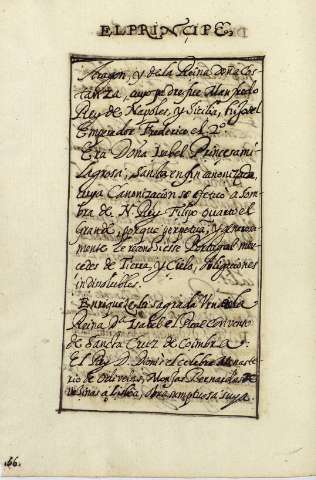 EL PRINCIPE,
Aragon, y de la Reina Doña Cos
tanza, cuyo padre fue Manfredo
Rey de Napoles, y Sicilia, hijo del
Emperador Frederico el 2º.
Era Doña Isabel Princesa mi
lagrosa, Santa en fin canonizada,
cuya Canonizacion se efetuo a som
bra de N. Rey Filipo quarto el
Grand, porque perpetua, y
mente le Portugal mer
cedes de Tierra, y Cielo, obligaciones
indisolubles.
Enriqueze la sagrada Urna de la
Reina Dª Isabel el Real convento
de Sancta Cruz de Coimbra:
El Rey D. Donis el celebre Monaste
rio de Odivelas, Monjas Bernardas, 
vezinas a Lisboa, obra sumptuosa suya.
66.